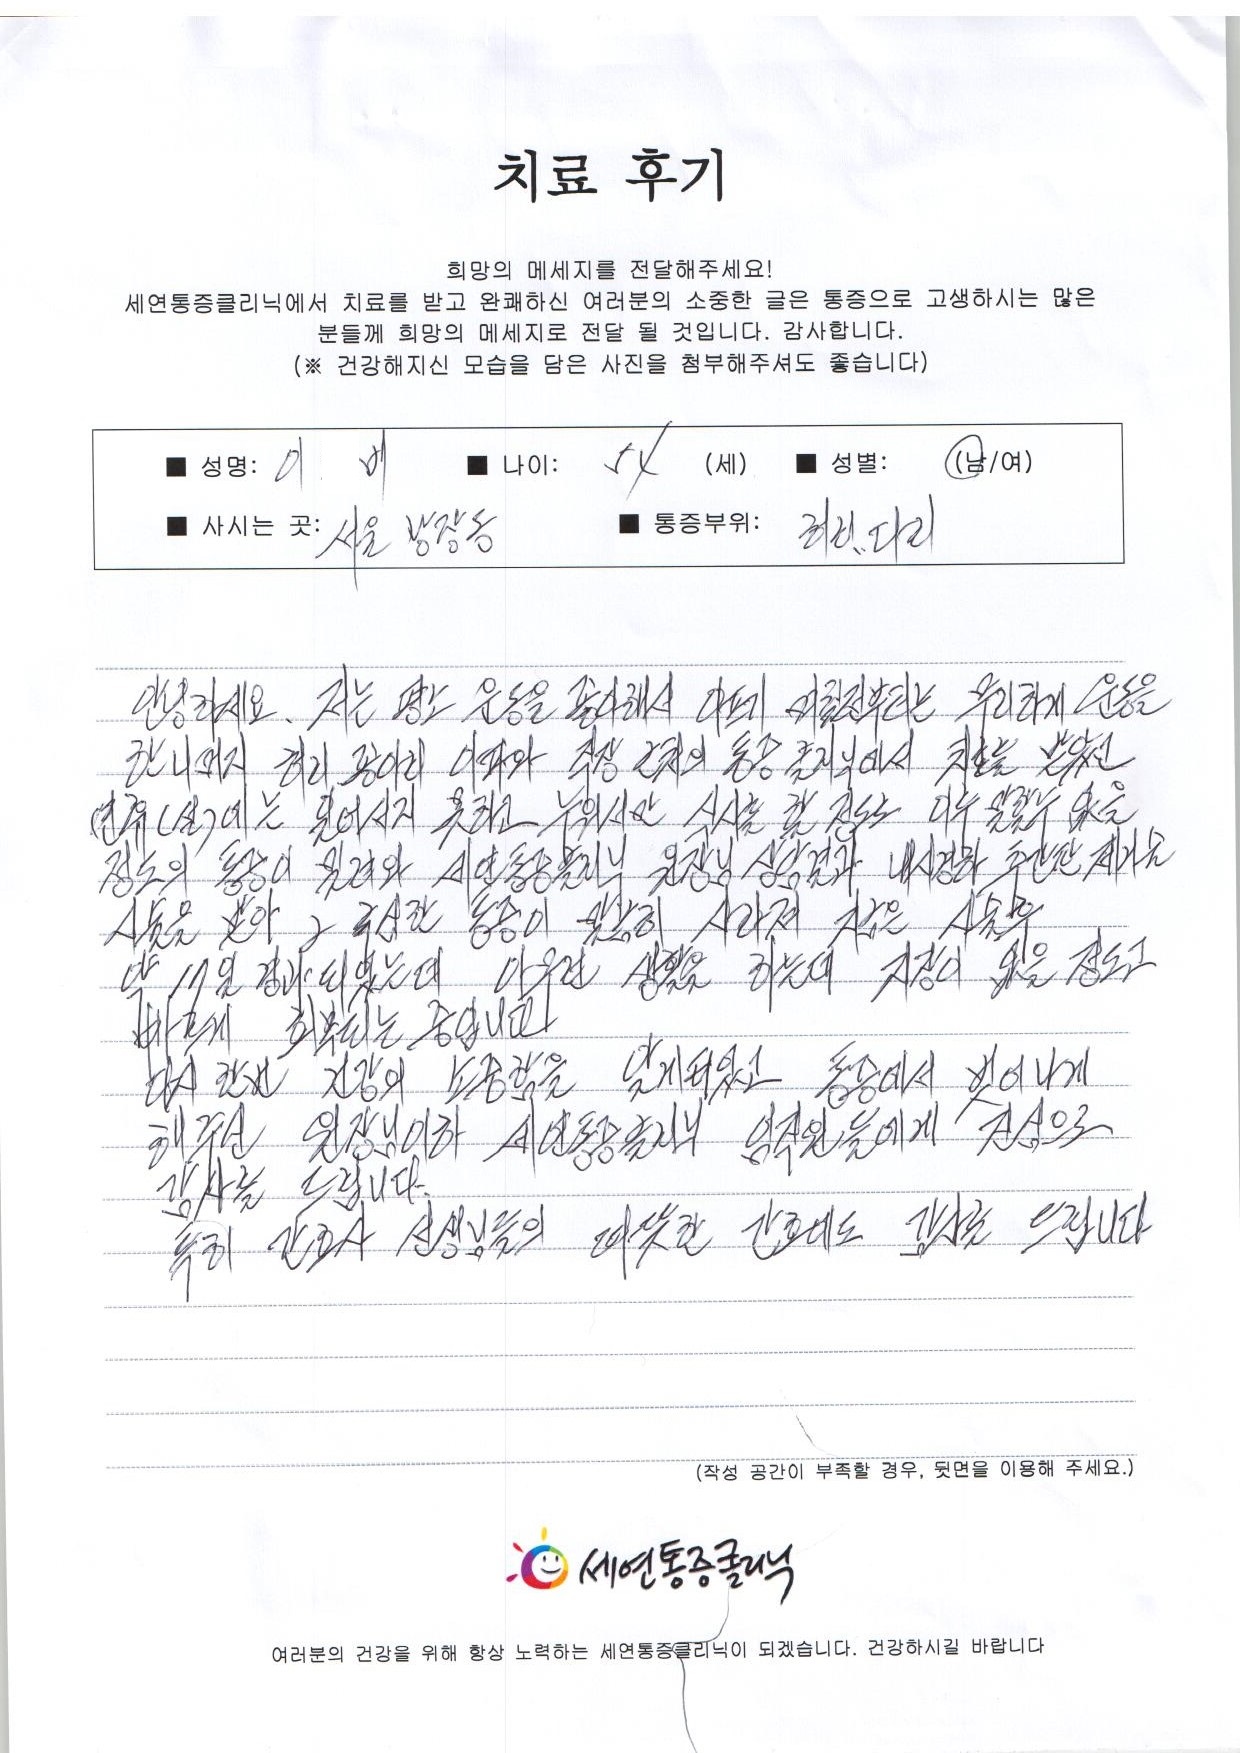 치료 후기
희망의 메세지를 전달해주세요!
세연통증클리닉에서 치료를 받고 완쾌하신 여러분의 소중한 글은 통증으로 고생하시는 많은
분들께 희망의 메세지로 전달 될 것입니다. 감사합니다.
(※ 건강해지신 모습을 담은 사진을 첨부해주셔도 좋습니다)
■ 성명: 이 비 ■ 나이: 54 (세) ■ 성별: (남/여)
■ 사시는 곳: 서울 방장동 ■ 통증부위: 허리.. 다리
안녕하세요. 저는 평소 운동을 좋아해서 아프기 며칠전부터는 무리하게 운동을
한 나머지 허리 종아리 아파와 직장 근처의 통증 클리닉에서 치료를 받았고
연휴(설)에는 일어서지 못하고 누워서만 식사를 할 정도로 이루 말할수 없을
정도의 통증이 밀려와 세연통증클리닉 원장님 상담결과 내시경하 추간판 제거
시술을 받아 그 극심한 통증이 말끔히 사라져 지금은 시술후
약 17일 경과 되었는데 아무런 생활을 하는데 지장이 없을 정도로
빠르게 회복되는 중입니다
다시 한번 건강의 소중함을 알게되었고 통증에서 벗어나게
해주신 원장님이하 세연통증클리닉 임직원들에게 진심으로
감사를 드립니다.
특히 간호사 선생님들의 따뜻한 간호에도 감사를 드립니다
(작성 공간이 부족할 경우, 뒷면을 이용해 주세요.)
세연통증클리닉
여러분의 건강을 위해 항상 노력하는 세연통증클리닉이 되겠습니다. 건강하시길 바랍니다